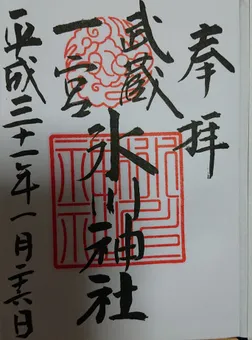 奉拝
武蔵
一宮
氷川神社
平成三十一年一月二十六日